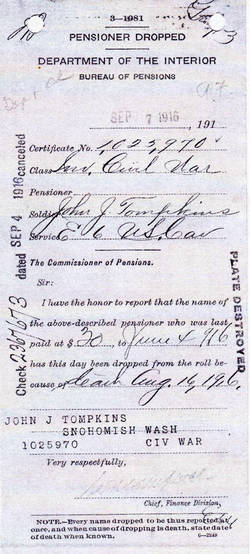 3—1081
PENSIONER DROPPED
DEPARTMENT OF THE INTERIOR
BUREAU OF PENSIONS
SEP 7 1916, 191
Certificate No. 1025970
Class Inv. Civil War
Pensioner
Soldier John J Tompkins
Service E 6 U.S. Cav
The Commissioner of Pensions.
Sir:
I have the honor to report that the name of
the above-described pensioner who was last
paid at $30, to June 4 1916
has this day been dropped from the roll be-
cause of death Aug. 16, 1916
JOHN J TOMPKINS
SNOHOMISH WASH
1025970 CIV WAR
Very respectfully,
Chief, Finance Division.
NOTE.—Every name dropped to be thus reported at
once, and when cause of dropping is death, state date
of death when known.
Check 2367673 dated SEP 4 1916 canceled
PLATE DESTROYED